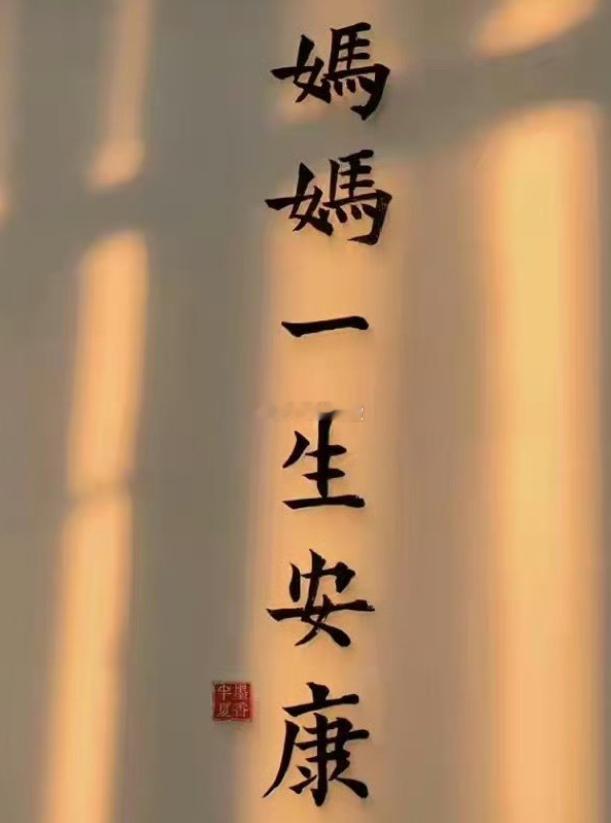 媽媽一生安康
墨香
半夏